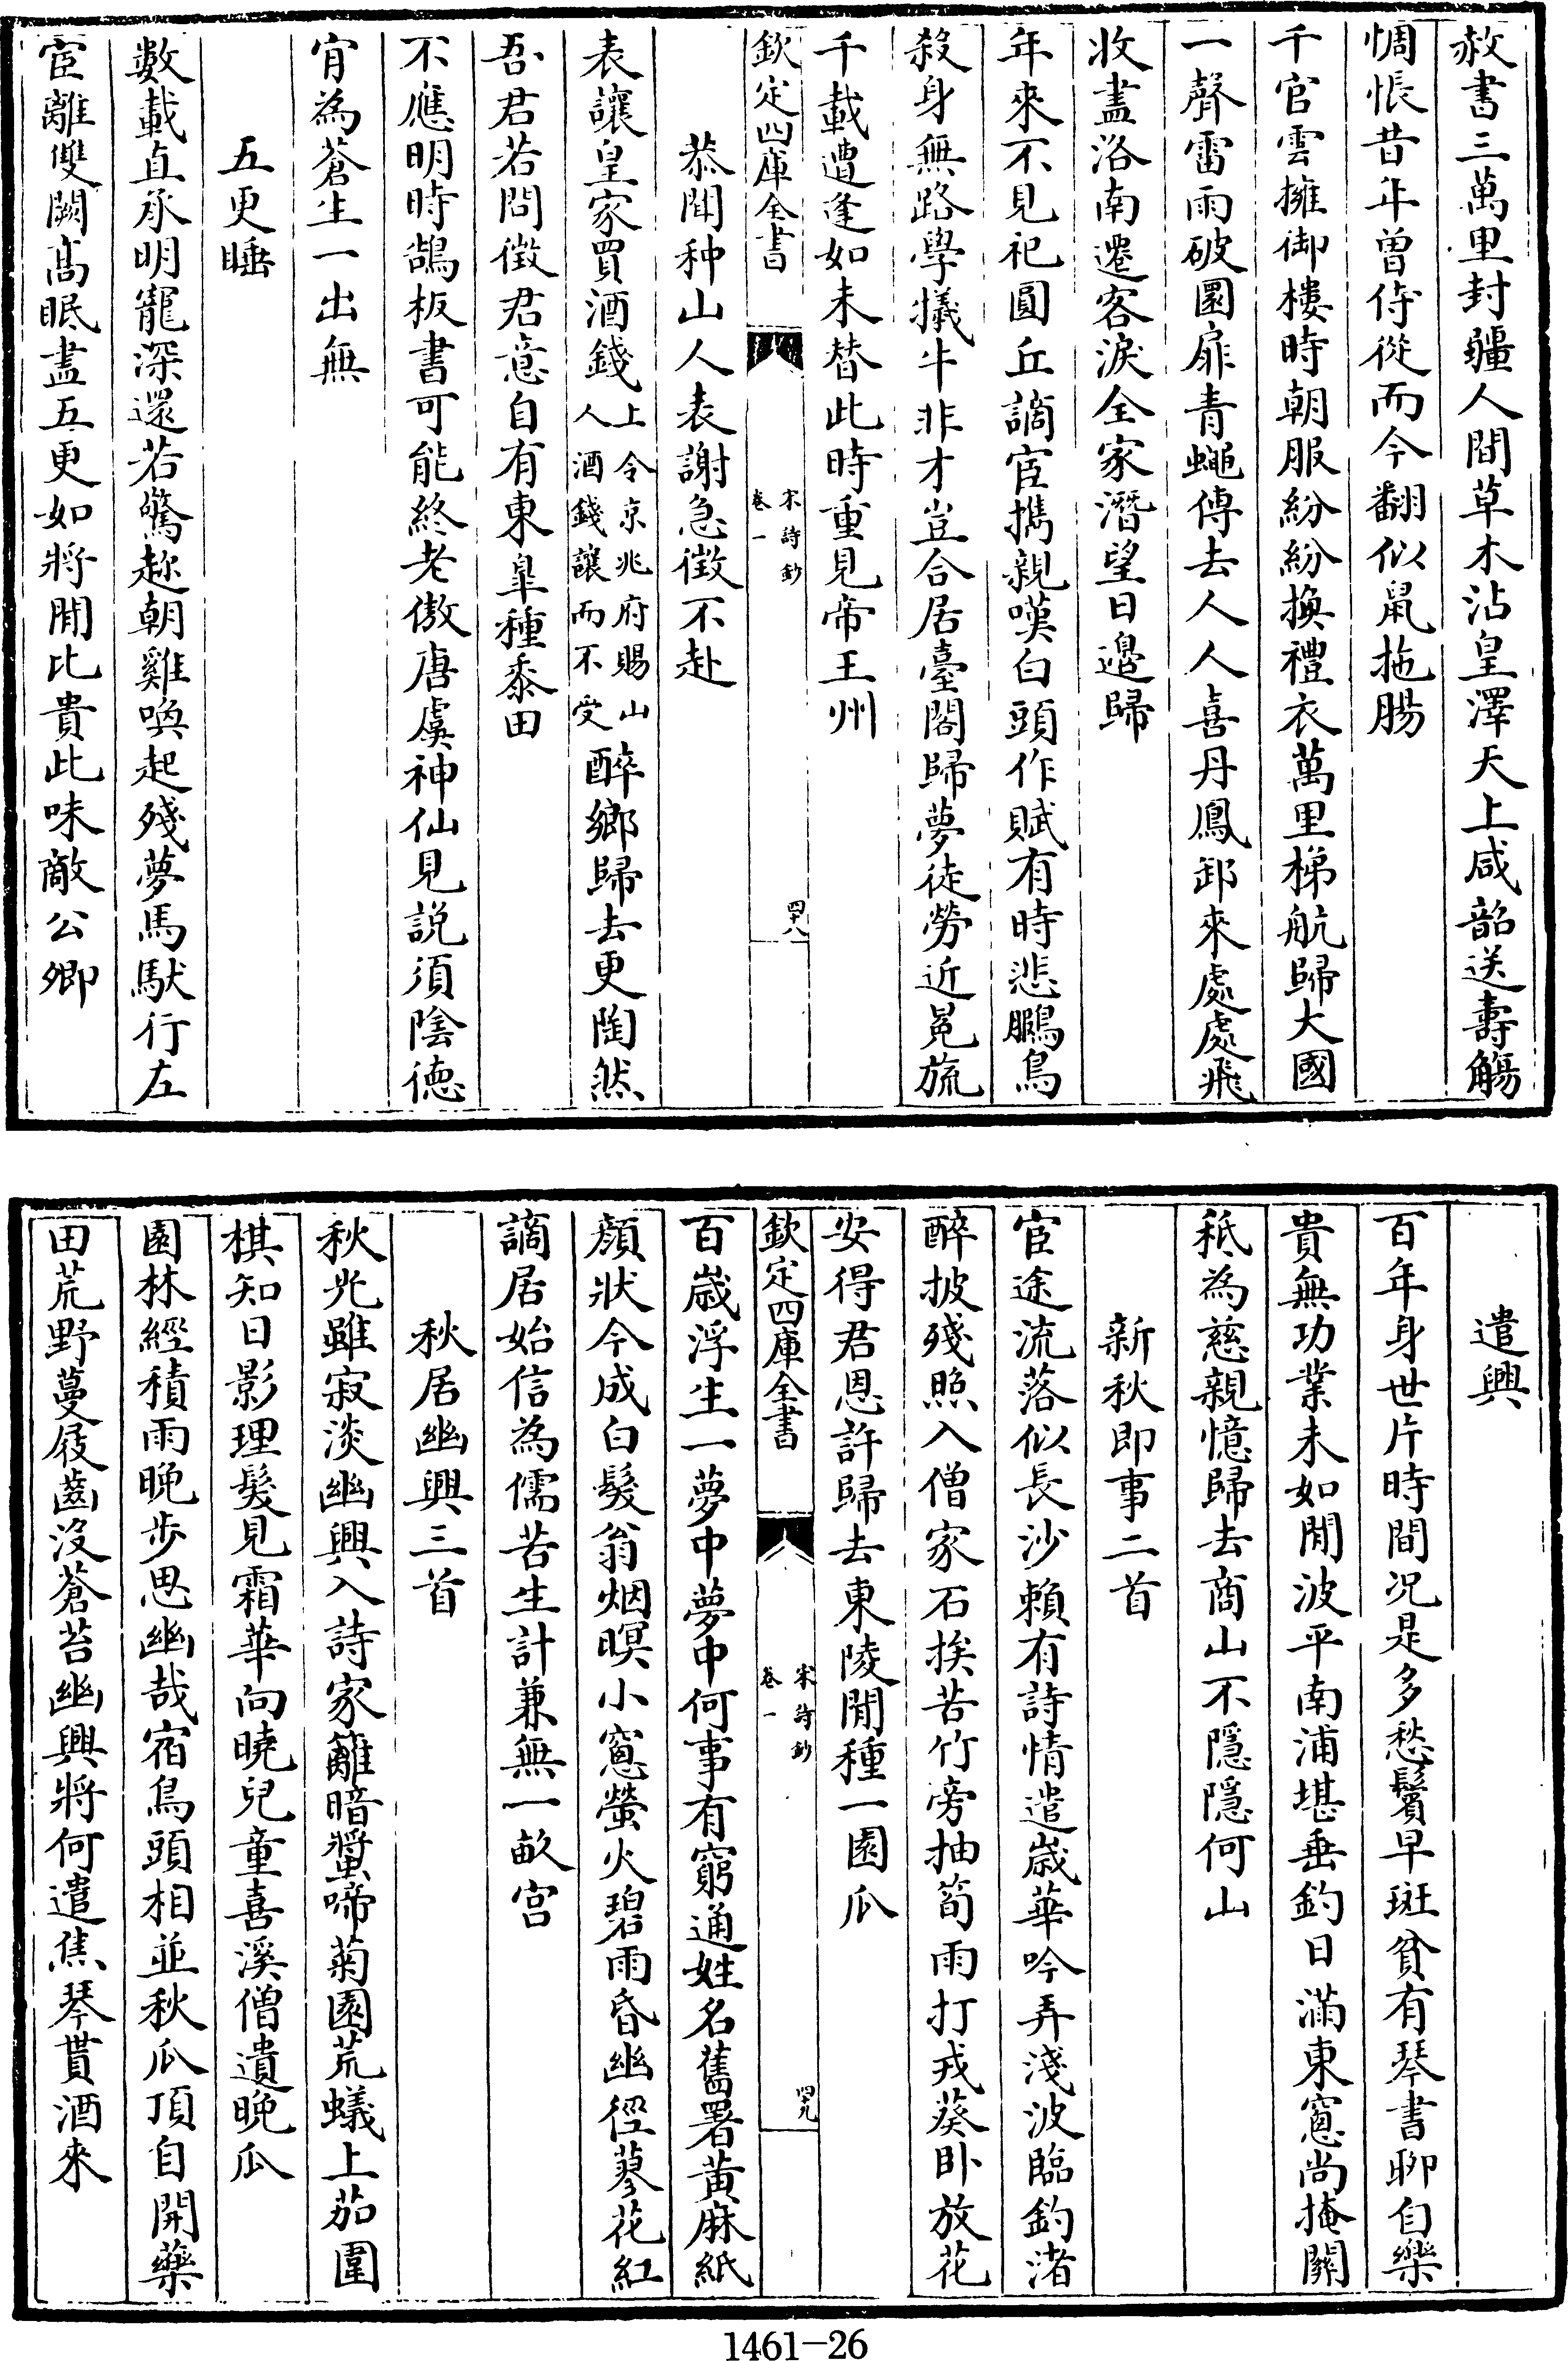 赦書三萬里封疆人間草木沾皇澤天上咸韶送壽觴
惆悵昔年曾侍從而今翻似鼠拖腸
千官雲擁御樓時朝服紛紛換禮衣萬里梯航歸大國
一聲雷雨破圜扉青蠅傳去人人喜丹鳳卸來處處飛
收盡洛南遷客淚全家潛望日邊歸
年來不見祀圓丘謫宦携親嘆白頭作賦有時悲鵩鳥
殺身無路學犧牛非才豈合居臺閣歸夢徒勞近冕旒
千載遭逢如未替此時重見帝王州
欽定四庫全書
宋詩鈔
卷一
四十八
恭聞种山人表謝急徵不赴
表讓皇家買酒錢上令京兆府賜山人酒錢讓而不受醉鄉歸去更陶然
吾君若問徵君意自有東臯種黍田
不應明時鵠板書可能終老傲唐虞神仙見説須陰德
肎為蒼生一出無
五更睡
數載直承明寵深還若驚趂朝雞喚起殘夢馬馱行左
宦離雙闕髙眠盡五更如將閒比貴此味敵公卿
遣興
百年身世片時間况是多愁鬢早斑貧有琴書聊自樂
貴無功業未如閒波平南浦堪垂釣日滿東窻尚掩關
秪為慈親憶歸去商山不隱隱何山
新秋即事二首
宦途流落似長沙頼有詩情遣歳華吟弄淺波臨釣渚
醉披殘照入僧家石挨苦竹旁抽筍雨打戎葵卧放花
安得君恩許歸去東陵閒種一園瓜
欽定四庫全書
宋詩鈔
卷一
四十九
百歳浮生一夢中夢中何事有窮通姓名舊署黄麻紙
顔狀今成白髮翁烟暝小窻螢火碧雨昏幽徑蓼花紅
謫居始信為儒苦生計兼無一畝宫
秋居幽興三首
秋光雖寂淡幽興入詩家籬暗蛩啼菊園荒蟻上茄圍
棋知日影理髮見霜華向曉兒童喜溪僧遺晚瓜
園林經積雨晚步思幽哉宿鳥頭相並秋瓜頂自開藥
田荒野蔓屐齒沒蒼苔幽興將何遣焦琴貰酒來
1461-26